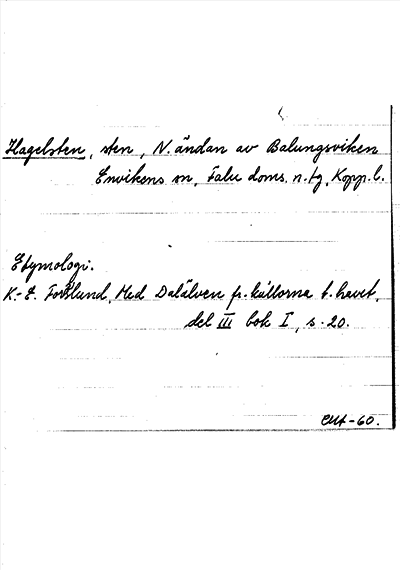 Hagelsten, sten, N. ändan av Balungsviken
Envikens sn, Falu doms. n. tg, Kopp. l.
Etymologi.
K.-E. Forslund, Med Dalälven fr. källorna t. havet,
del III bok I, s. 20.
-60.